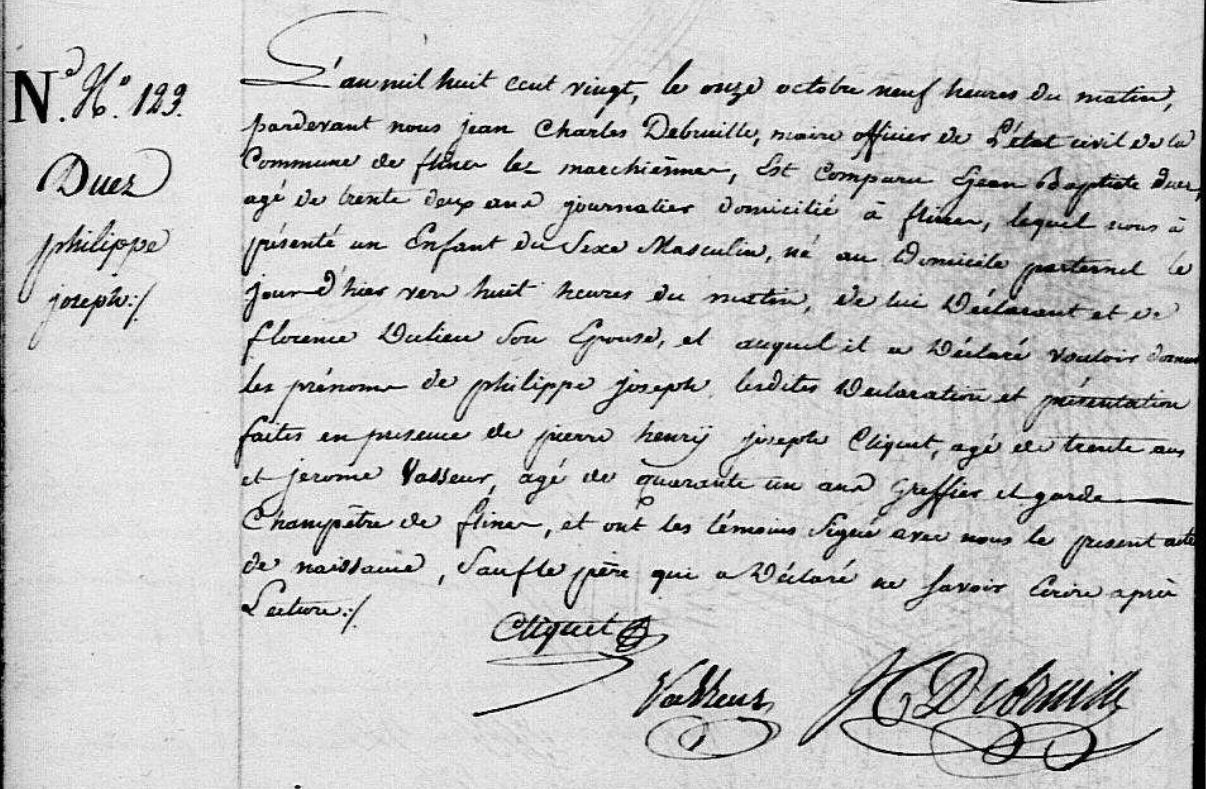 N.d N.o 123.
Duez
philippe
joseph:/
L'an mil huit cent vingt, le onze octobre neuf heures du matin,
pardevant nous jean Charles Debreille, maire officier de L'état civil de la
Commune de flines lez marchiennes, Est Comparu Jean Baptiste duez,
agé de trente deux ans journalier domicilié à flines, lequel nous à
présenté un Enfant du Sexe Masculin, né au Domicile parternel le
jour d'hier vers huit heures du matin, de lui Déclarant et de
florence Dulieu Son Epouse, et auquel il a Déclaré vouloir donner
les prénoms de philippe joseph. lesdites Declaration et présentation
faites en presence de pierre henrÿ joseph Cliquet, agé de trente ans
et jerome Vasseur, agé de quarante un ans Greffier et garde
Champêtre de flines, et ont les témoins Signé avec nous le present acte
de naissance, Sauf le père qui a Déclaré ne Savoir Ecrire après
Lecture:/
Cliquet
Vasseur
JC Debreille